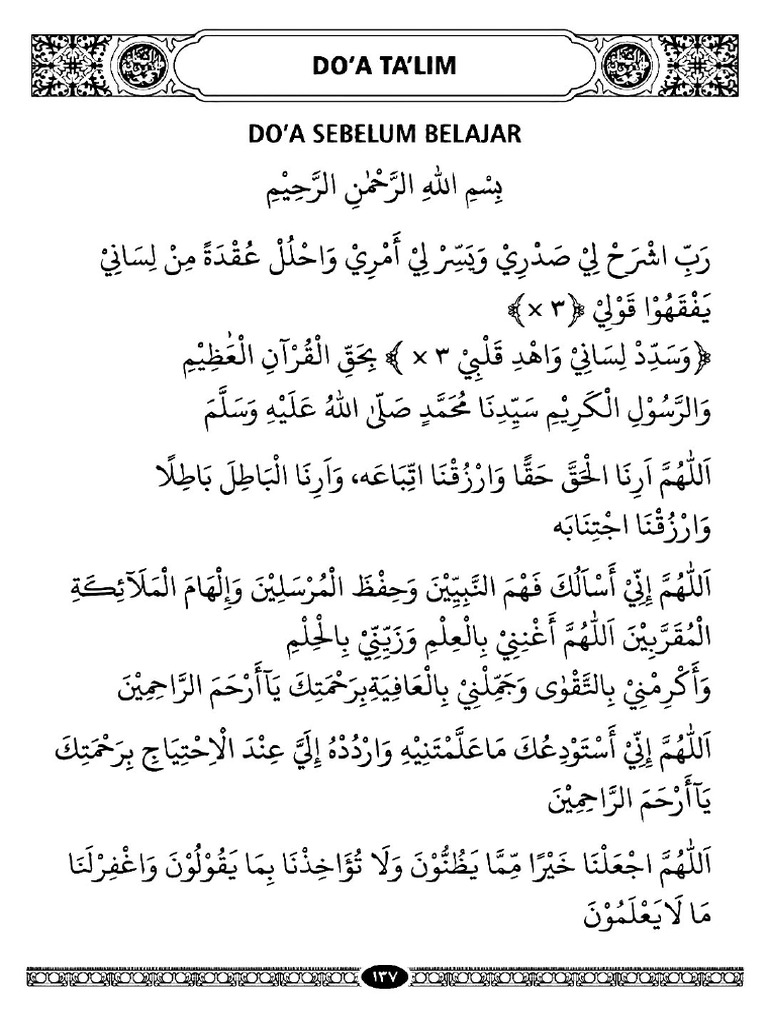 DO'A TA'LIM
DO'A SEBELUM BELAJAR
بِسْمِ اللهِ الرَّحْمٰنِ الرَّحِيْمِ
رَبِّ اشْرَحْ لِيْ صَدْرِيْ وَيَسِّرْ لِيْ أَمْرِيْ وَاحْلُلْ عُقْدَةً مِنْ لِسَانِيْ
يَفْقَهُوْا قَوْلِيْ ﴿٣ ×﴾
﴿وَسَدِّدْ لِسَانِيْ وَاهْدِ قَلْبِيْ ٣ × ﴾ بِحَقِّ الْقُرْآنِ الْعَظِيْمِ
وَالرَّسُوْلِ الْكَرِيْمِ سَيِّدِنَا مُحَمَّدٍ صَلَّى اللهُ عَلَيْهِ وَسَلَّمَ
اَللّٰهُمَّ اَرِنَا الْحَقَّ حَقًّا وَارْزُقْنَا اتِّبَاعَه، وَاَرِنَا الْبَاطِلَ بَاطِلًا
وَارْزُقْنَا اجْتِنَابَه
اَللّٰهُمَّ إِنِّيْ أَسْاَلُكَ فَهْمَ النَّبِيِّيْنَ وَحِفْظَ الْمُرْسَلِيْنَ وَإِلْهَامَ الْمَلَآئِكَةِ
الْمُقَرَّبِيْنَ اَللّٰهُمَّ أَغْنِنِيْ بِالْعِلْمِ وَزَيِّنِّيْ بِالْحِلْمِ
وَأَكْرِمْنِيْ بِالتَّقْوٰى وَجَمِّلْنِيْ بِالْعَافِيَةِ بِرَحْمَتِكَ يَآأَرْحَمَ الرَّاحِمِيْنَ
اَللّٰهُمَّ إِنِّيْ أَسْتَوْدِعُكَ مَاعَلَّمْتَنِيْهِ وَارْدُدْهُ إِلَيَّ عِنْدَ الْاِحْتِيَاجِ بِرَحْمَتِكَ
يَآأَرْحَمَ الرَّاحِمِيْنَ
اَللّٰهُمَّ اجْعَلْنَا خَيْرًا مِّمَّا يَظُنُّوْنَ وَلَا تُؤَاخِذْنَا بِمَا يَقُوْلُوْنَ وَاغْفِرْلَنَا
مَا لَايَعْلَمُوْنَ
١٣٧